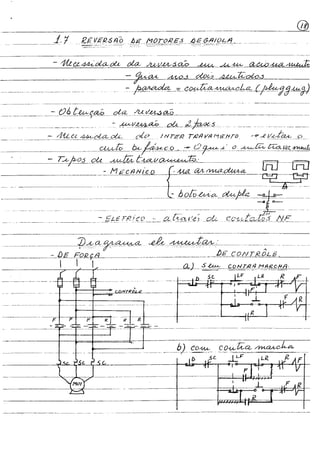 18
1.7 REVERSÃO DE MOTORES DE GAIOLA.
- Necessidade da reversão em um acionamento
- girar nos dois sentidos
- parada = contramarcha (plugging)
- Obtenção da reversão
- inversão de 2 fases
- Necessidade do INTERTRAVAMENTO → evitar o
curto bifásico. → O que é o intertravamento
- Tipos de intertravamento:
- MECÂNICO na armadura
- botoeira dupla
- ELÉTRICO - através de contatos NF
Diagrama elementar:
- DE FORÇA DE CONTROLE
a) Sem CONTRAMARCHA
D SC LF LR R F
CONTROLE
F R
R
F F F R R R
b) com contramarcha
D SC LF LR R F
SC SC SC
F
F R
MOT
R